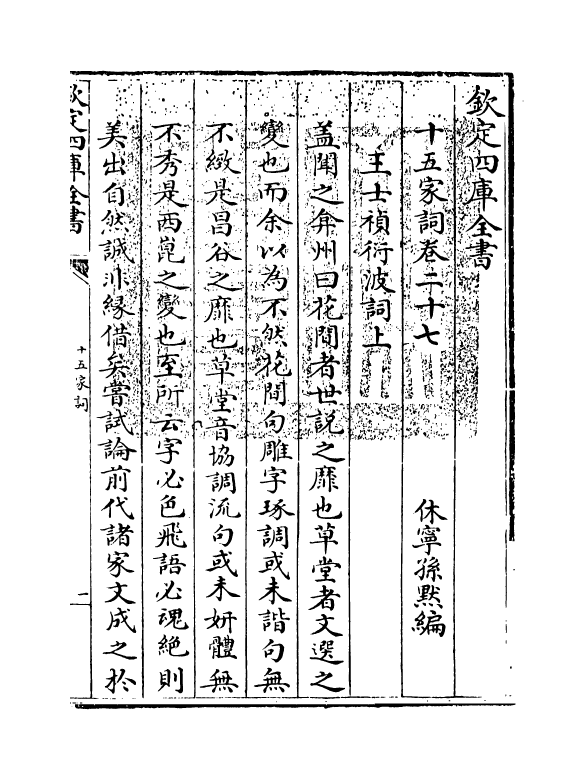 欽定四庫全書
十五家詞卷二十七
休寧孫黙編
王士禎衍波詞上
盖聞之弇州曰花間者世說之靡也草堂者文選之
變也而余以為不然花間句雕字琢調或未諧句無
不緻是昌谷之靡也草堂音協調流句或未妍體無
不秀是西崑之變也至所云字必色飛語必魂絶則
美出自然誠非緣借矣嘗試論前代諸家文成之於
欽定四庫全書
十五家詞
一